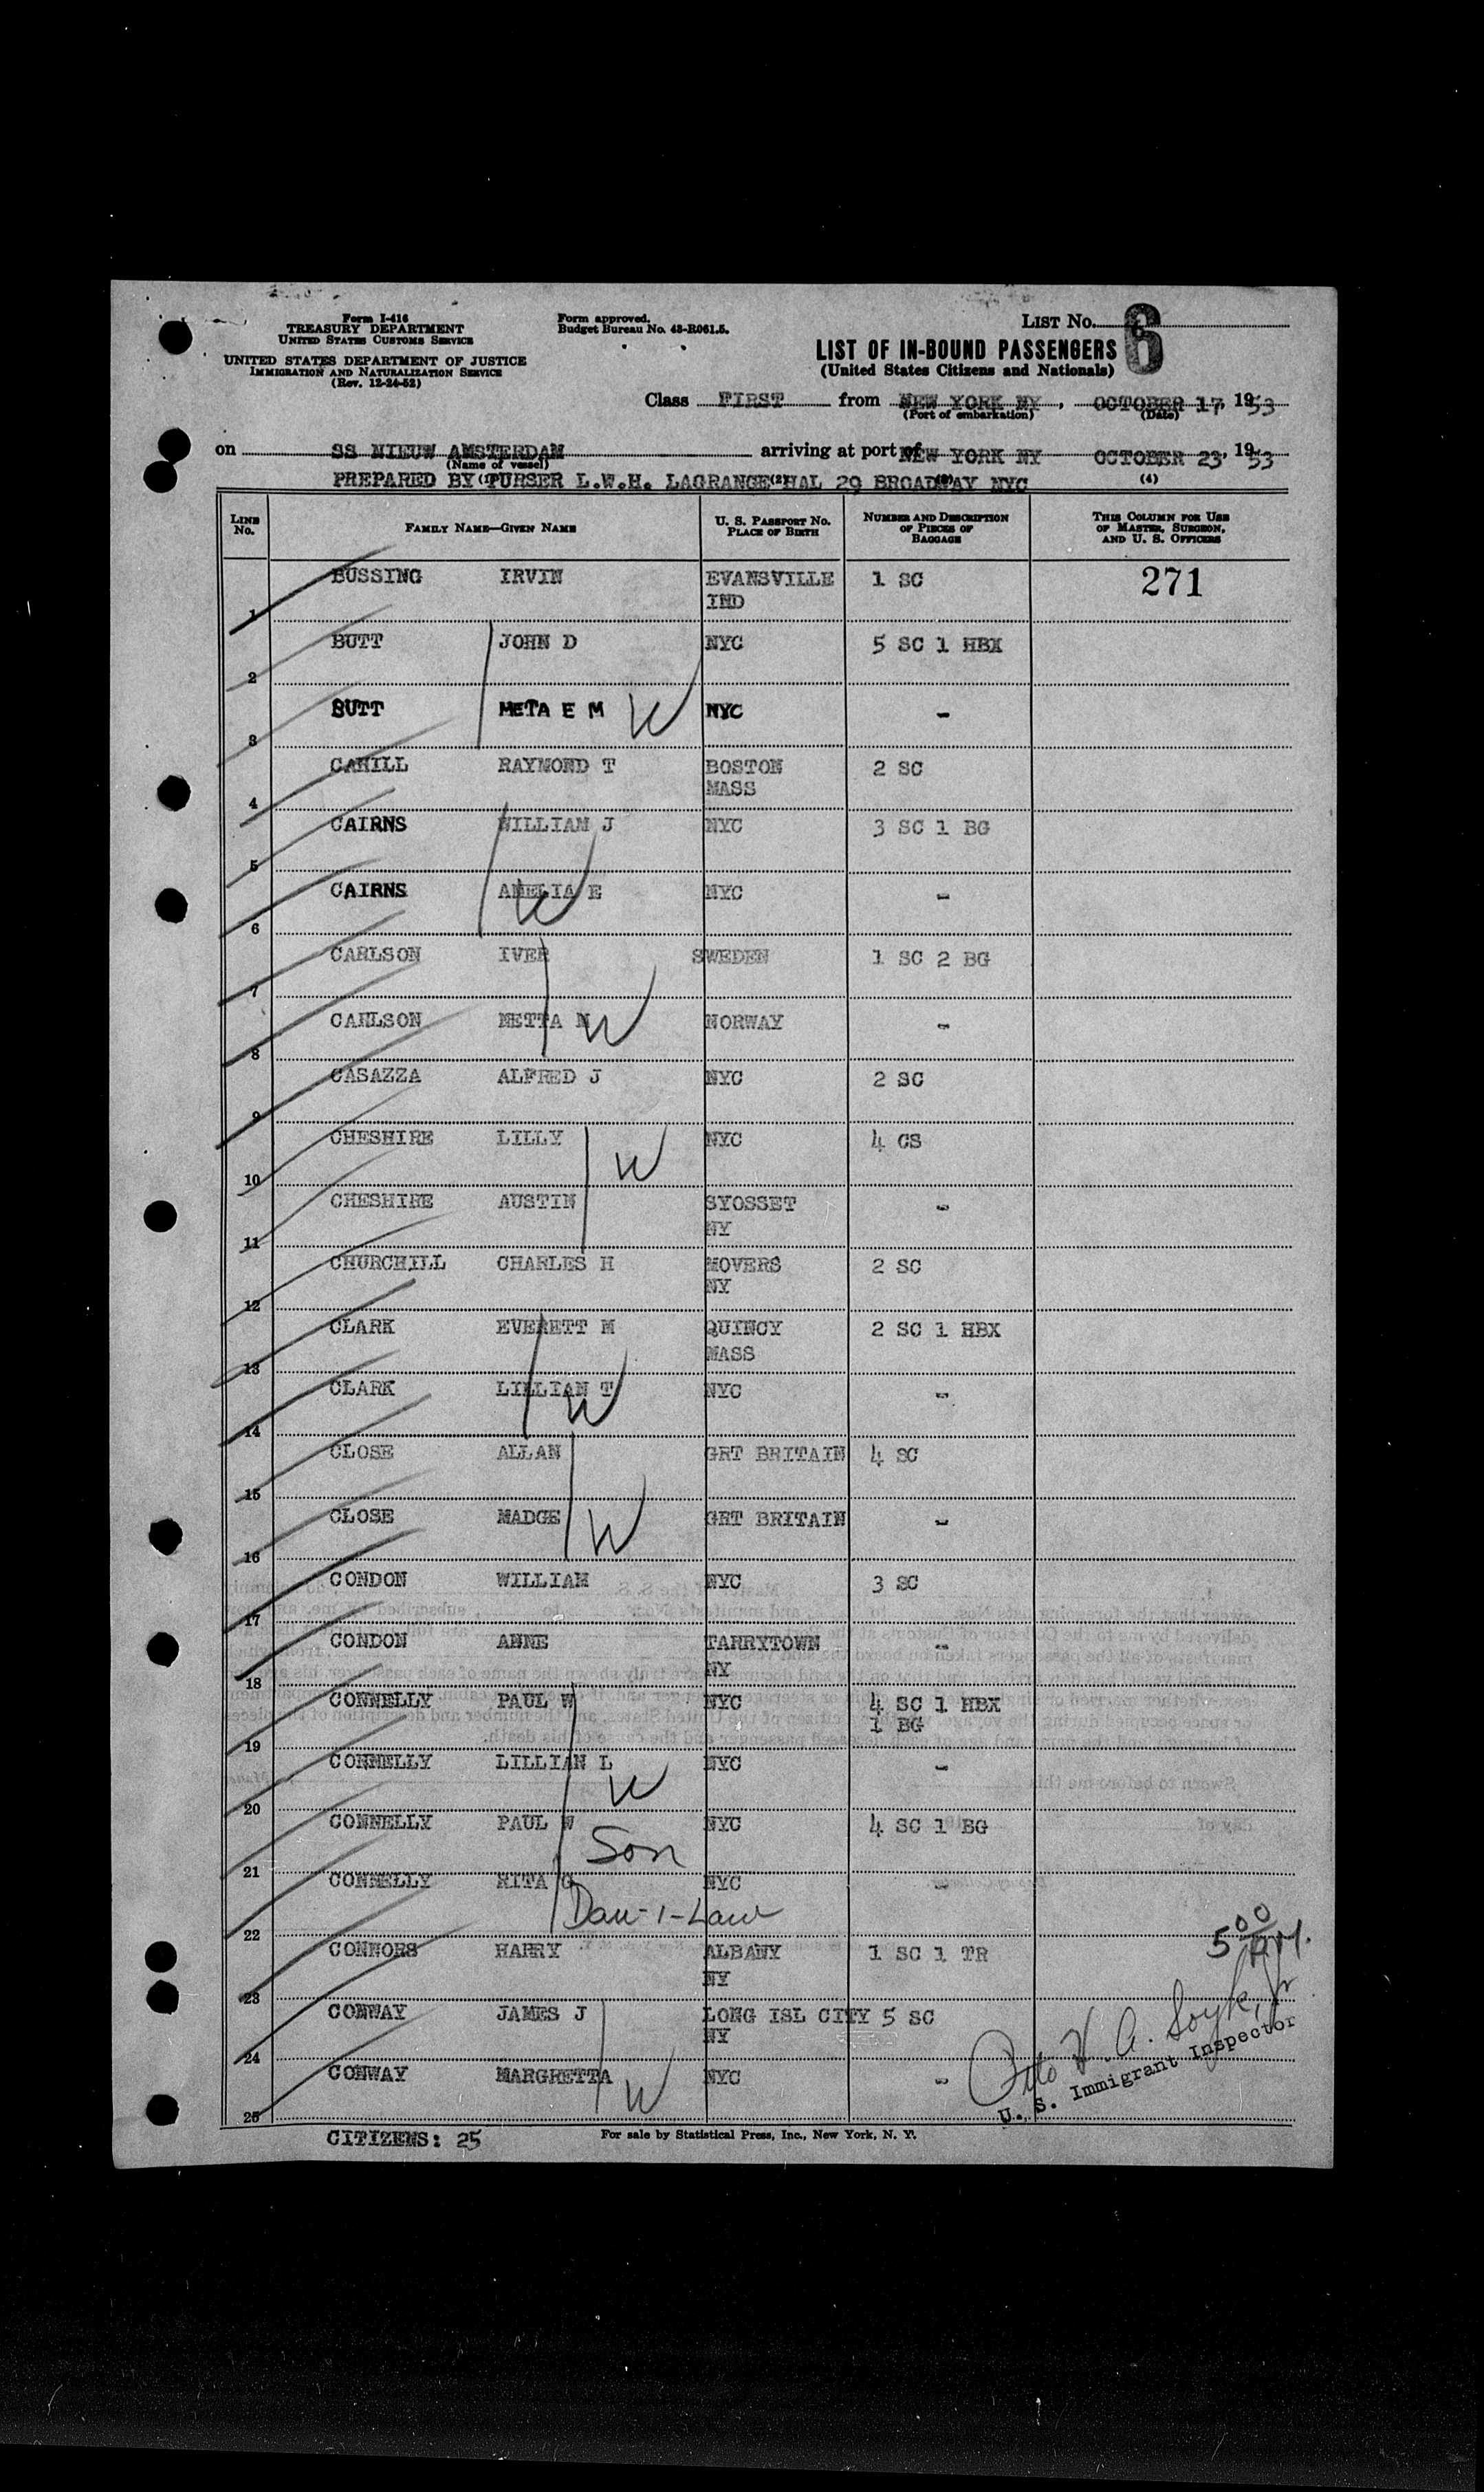 Form I-416
TREASURY DEPARTMENT
UNITED STATES CUSTOMS SERVICE
UNITED STATES DEPARTMENT OF JUSTICE
IMMIGRATION AND NATURALIZATION SERVICE
(Rev. 12-24-52)
Form approved.
Budget Bureau No. 43-R061.5.
LIST No. 6
LIST OF IN-BOUND PASSENGERS
(United States Citizens and Nationals)
Class FIRST from NEW YORK NY, OCTOBER 17, 1953
(Port of embarkation) (Date)
on SS NIEUW AMSTERDAM arriving at port of NEW YORK NY OCTOBER 23, 1953
(Name of vessel)
PREPARED BY (1) PURSER L.W.H. LAGRANGE (2) HAL 29 BROADWAY NYC (3) (4)
LINE No. FAMILY NAME—GIVEN NAME U. S. PASSPORT NO. PLACE OF BIRTH NUMBER AND DESCRIPTION OF PIECES OF BAGGAGE THIS COLUMN FOR USE OF MASTER, SURGEON, AND U. S. OFFICERS
1 BUSSING IRVIN EVANSVILLE IND 1 SC 271
2 BUTT JOHN D NYC 5 SC 1 HBX
3 BUTT META E M W NYC -
4 CAHILL RAYMOND T BOSTON MASS 2 SC
5 CAIRNS WILLIAM J NYC 3 SC 1 BG
6 CAIRNS AMELIA E W NYC -
7 CARLSON IVER SWEDEN 1 SC 2 BG
8 CARLSON METTA M W NORWAY -
9 CASAZZA ALFRED J NYC 2 SC
10 CHESHIRE LILLY W NYC 4 CS
11 CHESHIRE AUSTIN SYOSSET NY -
12 CHURCHILL CHARLES H MOVERS NY 2 SC
13 CLARK EVERETT M QUINCY MASS 2 SC 1 HBX
14 CLARK LILLIAN T W NYC -
15 CLOSE ALLAN GRT BRITAIN 4 SC
16 CLOSE MADGE W GRT BRITAIN -
17 CONDON WILLIAM NYC 3 SC
18 CONDON ANNE TARRYTOWN NY -
19 CONNELLY PAUL W NYC 4 SC 1 HBX 1 BG
20 CONNELLY LILLIAN L W NYC -
21 CONNELLY PAUL W Son NYC 4 SC 1 BG
22 CONNELLY RITA G Dau-i-Law NYC -
23 CONNORS HARRY ALBANY NY 1 SC 1 TR
5 00 P.M.
24 CONWAY JAMES J LONG ISL CITY NY 5 SC
25 CONWAY MARGRETTA W NYC -
Otto H. A. Soyk, Jr
U. S. Immigrant Inspector
CITIZENS: 25
For sale by Statistical Press, Inc., New York, N. Y.